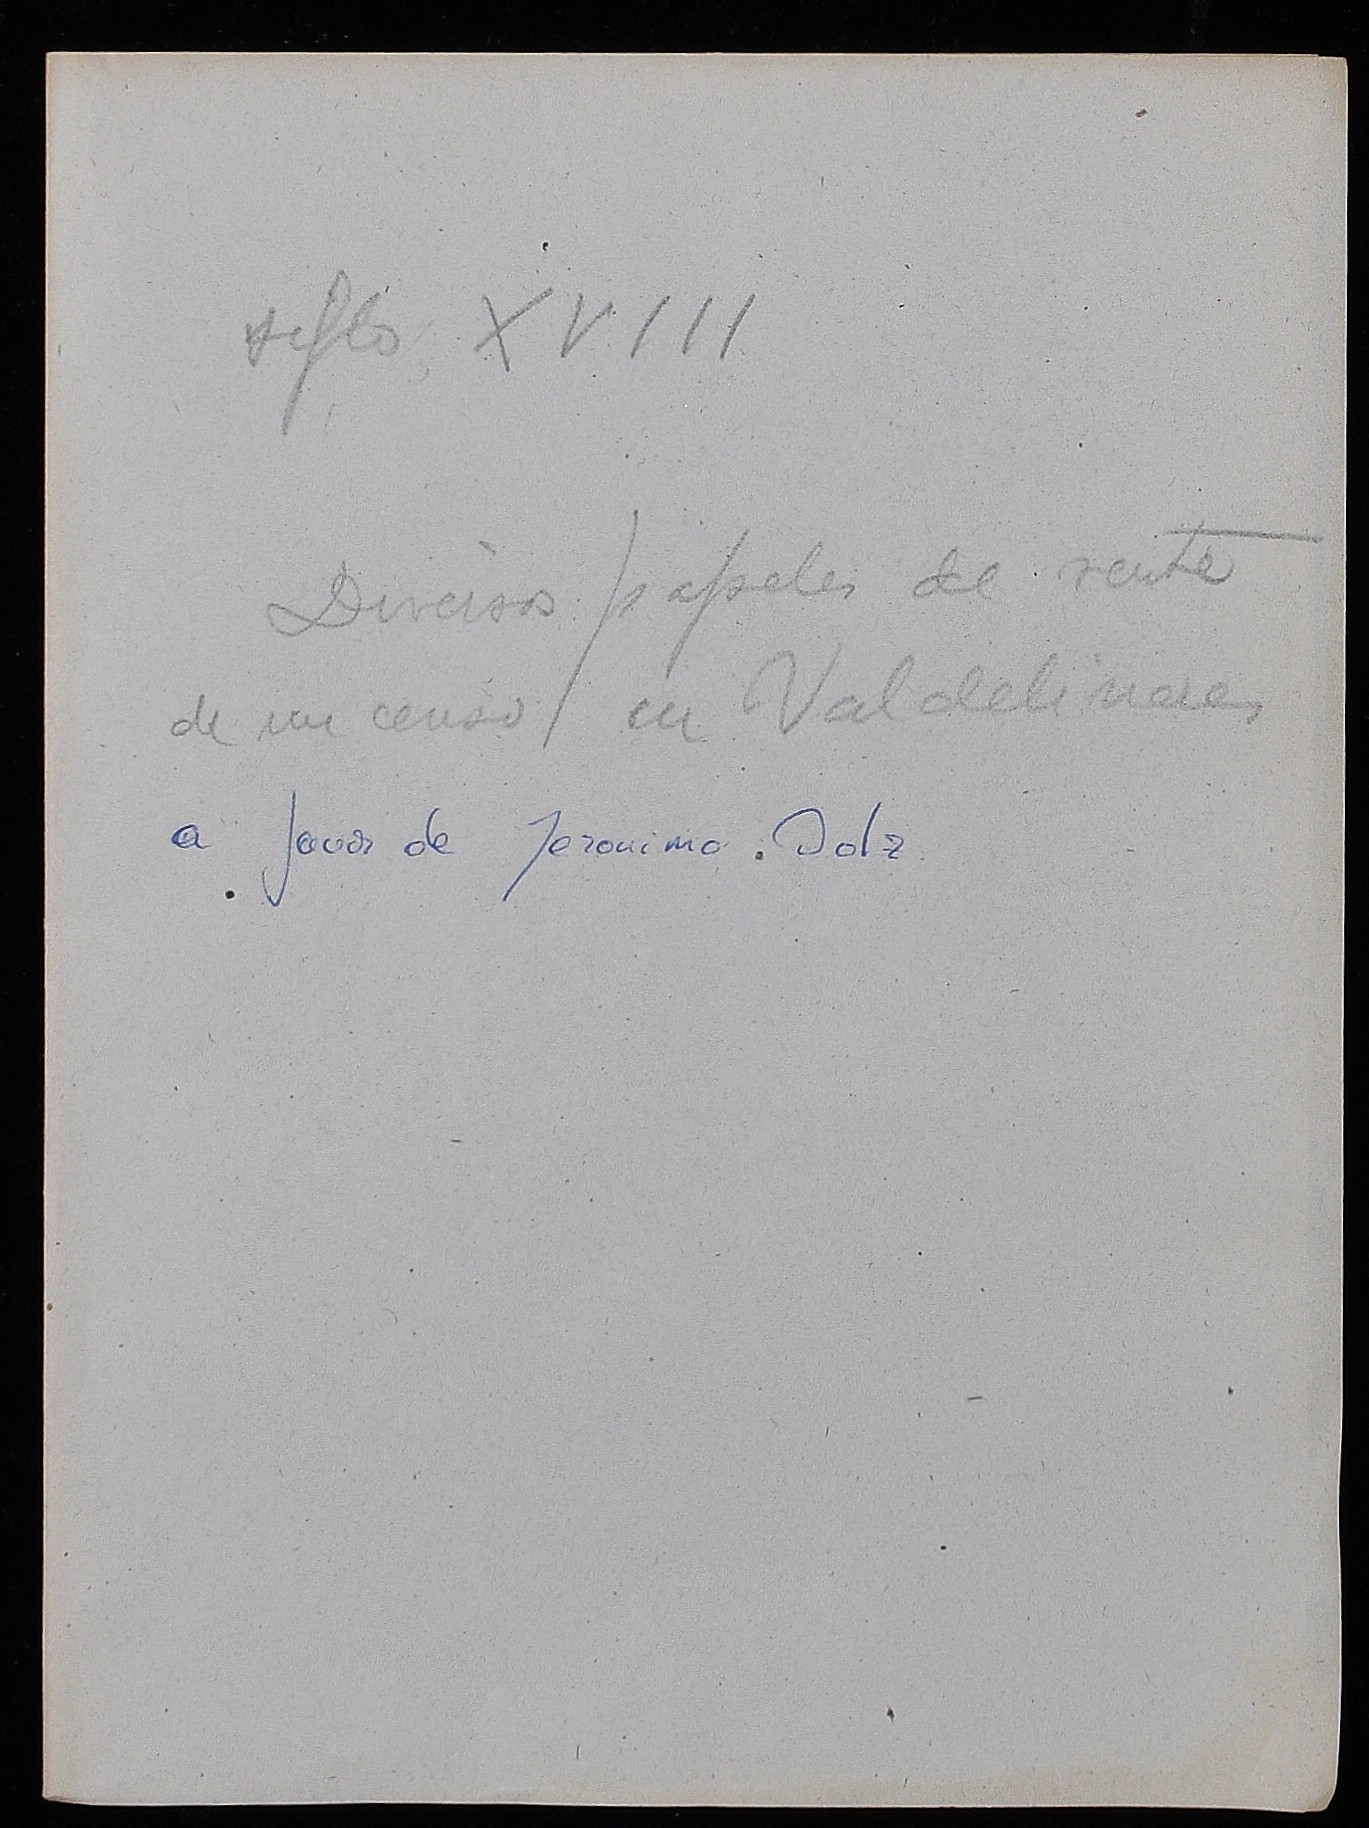 siglo XVIII
Diversos papeles de renta
de un censo en Valdelinares
a favor de Jeronimo Dolz